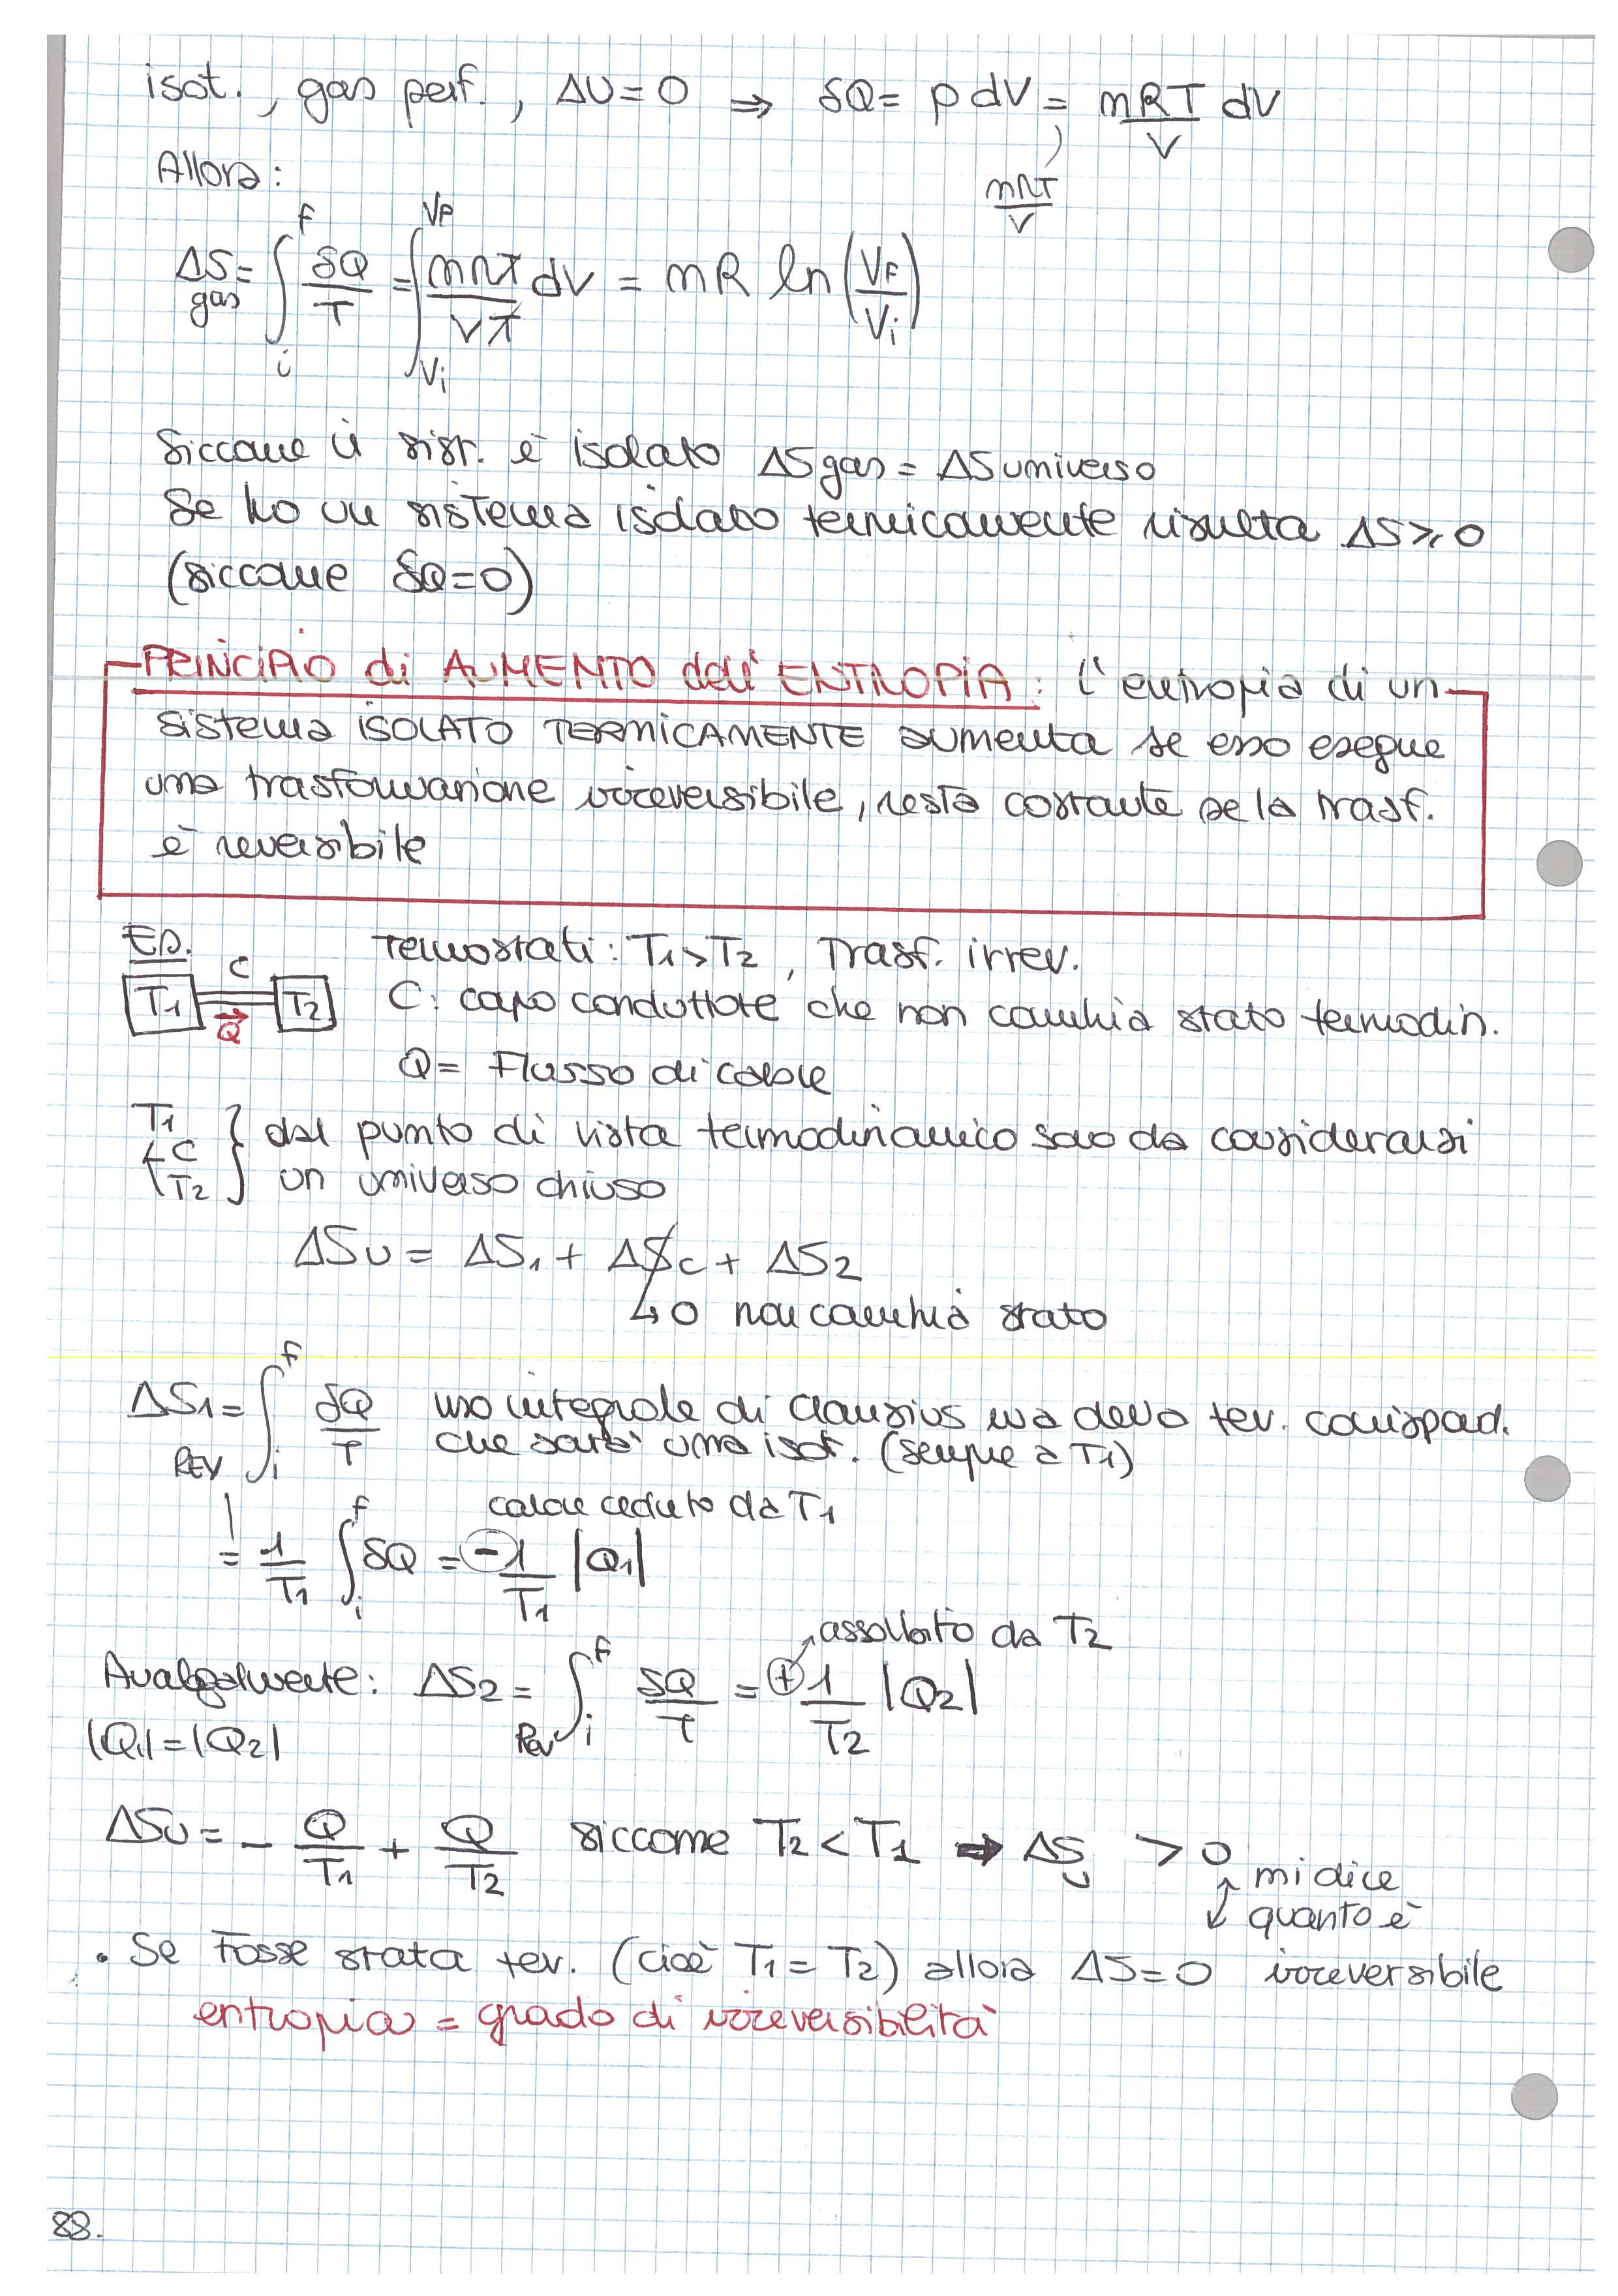 isot., gas perf., ΔU=0 ⇒ δQ= p dV = nRT/V dV
nRT/V
Allora:
ΔS gas = ∫_i^f δQ/T = ∫_Vi^VF nRT/VT dV = nR ln(VF/Vi)
Siccome il sist. è isolato ΔSgas = ΔSuniverso
Se ho un sistema isolato termicamente risulta ΔS≥0
(siccome δQ=0)
PRINCIPIO di AUMENTO dell'ENTROPIA: l'entropia di un
sistema ISOLATO TERMICAMENTE aumenta se esso esegue
una trasformazione irreversibile, resta costante se la trasf.
è reversibile
ES.
T1 C T2
Q
Termostati: T1>T2, Trasf. irrev.
C: capo conduttore che non cambia stato termodin.
Q= Flusso di calore
T1
C
T2
} dal punto di vista termodinamico sono da considerarsi
un universo chiuso
ΔSU = ΔS1 + ΔSC + ΔS2
↳ 0 non cambia stato
ΔS1 = ∫_i^f REV δQ/T uso integrale di Clausius ma devo rev. corrispond.
che sarà una isot. (sempre a T1)
calore ceduto da T1
= 1/T1 ∫_i^f δQ = -1/T1 |Q1|
assorbito da T2
Analogamente: ΔS2 = ∫_i^f Rev δQ/T = +1/T2 |Q2|
|Q1|=|Q2|
ΔSU = - Q/T1 + Q/T2 siccome T2<T1 ⇒ ΔSU > 0
mi dice
quanto è
irreversibile
• Se Fosse stata rev. (cioè T1=T2) allora ΔS=0
entropia = grado di irreversibilità
88.